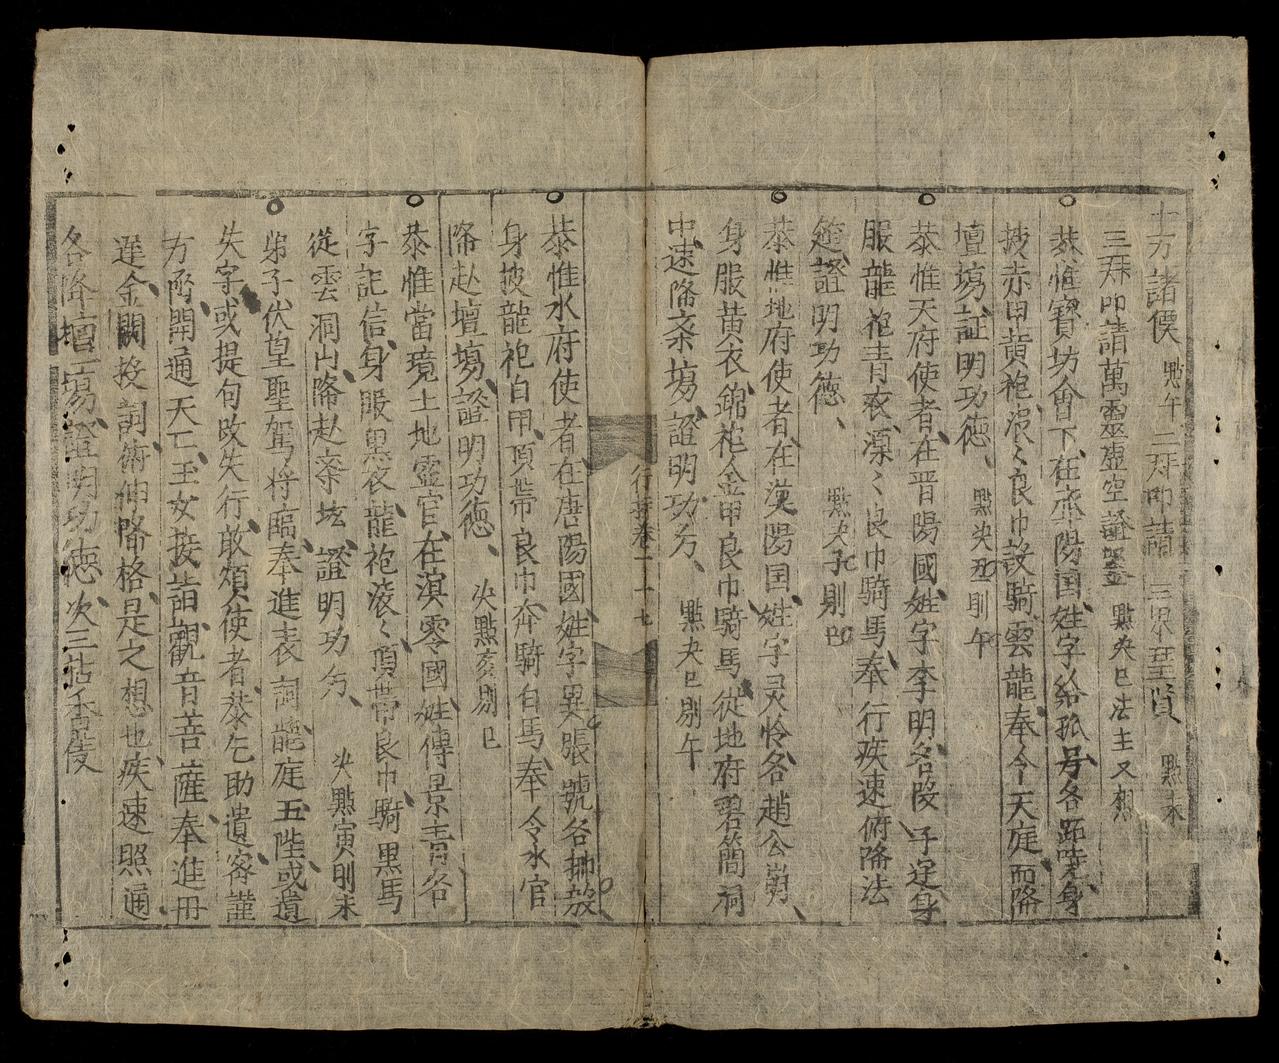 十方諸僊 點午 二拜叩請 三界聖賢 點未
三拜叩請萬靈虛空 點央巳法主又想
恭惟寶坊會下在 陽国姓字 孤号各 身
披赤甲黄袍 良巾 騎雲龍奉令天庭而降
壇塲証明功徳 點央丑則午
恭惟天府使者在晋陽國姓字李明各段 子 身
服龍袍青衣凛々良巾騎馬奉行疾速俯降法
筵證明功徳 點央子則巳
恭惟地府使者在漢陽国姓字灵怜各趙公
身服黄衣錦袍金甲良巾騎馬從地府 簡祠
中速降斎塲證明功 點央巳則午
行持卷二 十七
恭惟水府使者在唐陽國姓字吳張號各 放
身披龍袍白甲頂帶良巾奔騎白馬奉令水官
降赴壇塲證明功徳 央點亥則巳
恭惟當境土地靈官在滇零國姓傳景青各
字記信身服黒衣龍袍滚々頂帶良巾騎黒馬
從雲洞山降赴斎坛證明功 央點寅則未
弟子伏望聖駕将臨奉進表詞龍庭五陛或遺
失字或提句改失行敢煩使者恭乞助遺客謹
方函開通天仁玉女接詣觀音菩薩奉進冊
達金闕投詞俯伸降格是之想也疾速照通
各降壇塲證明功徳次三拈香